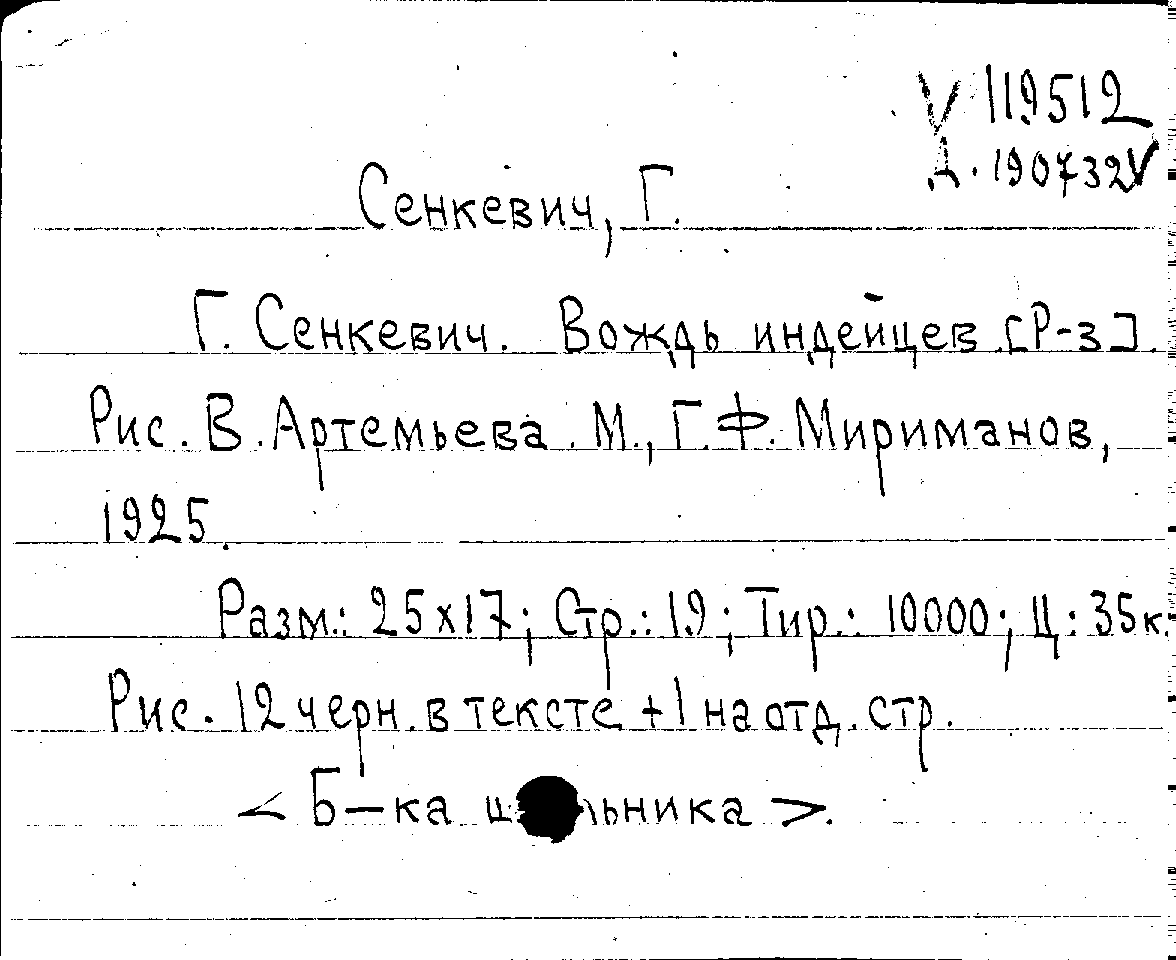 V 119512
Д. 190732V
Сенкевич, Г.
Г. Сенкевич. Вождь индейцев [Р-з].
Рис. В. Артемьева. М., Г. Ф. Мириманов,
1925.
Разм.: 25x17; Стр.: 19; Тир.: 10000; Ц: 35к.
Рис. 12 черн. в тексте + 1 на отд. стр.
< Б-ка >.